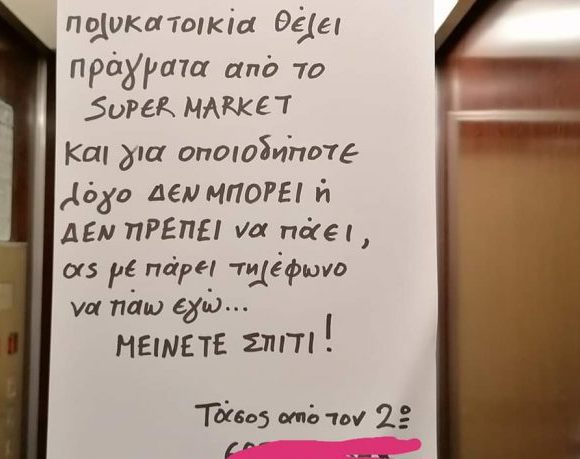 πολυκατοικία θέλει
πράγματα από το
SUPER MARKET
και για οποιοδήποτε
λόγο ΔΕΝ ΜΠΟΡΕΙ ή
ΔΕΝ ΠΡΕΠΕΙ να πάει,
ας με πάρει τηλέφωνο
να πάω εγώ...
ΜΕΙΝΕΤΕ ΣΠΙΤΙ!
Τάσος από τον 2ο